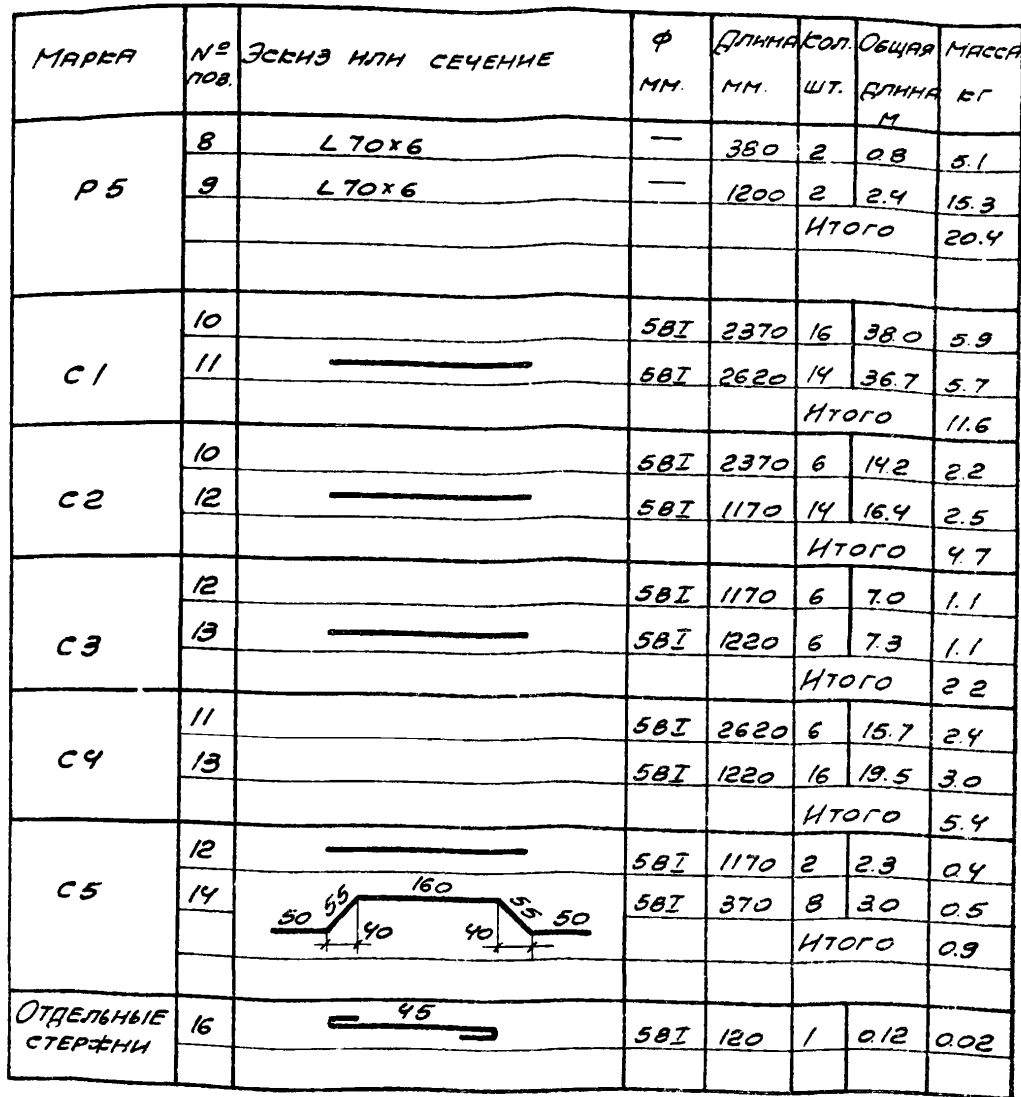 МАРКА № ПОЗ. ЭСКИЗ ИЛИ СЕЧЕНИЕ Ф ММ. ДЛИНА ММ. КОЛ. ШТ. ОБЩАЯ ДЛИНА М МАССА КГ
Р5 8 L 70×6 — 380 2 0.8 5.1
9 L 70×6 — 1200 2 2.4 15.3
ИТОГО 20.4
С1 10 5ВI 2370 16 38.0 5.9
11 5ВI 2620 14 36.7 5.7
ИТОГО 11.6
С2 10 5ВI 2370 6 14.2 2.2
12 5ВI 1170 14 16.4 2.5
ИТОГО 4.7
С3 12 5ВI 1170 6 7.0 1.1
13 5ВI 1220 6 7.3 1.1
ИТОГО 2 2
С4 11 5ВI 2620 6 15.7 2.4
13 5ВI 1220 16 19.5 3.0
ИТОГО 5.4
С5 12 5ВI 1170 2 2.3 0.4
14 50 55 40 160 40 55 50 5ВI 370 8 3.0 0.5
ИТОГО 0.9
ОТДЕЛЬНЫЕ СТЕРЖНИ 16 45 5ВI 120 1 0.12 0.02